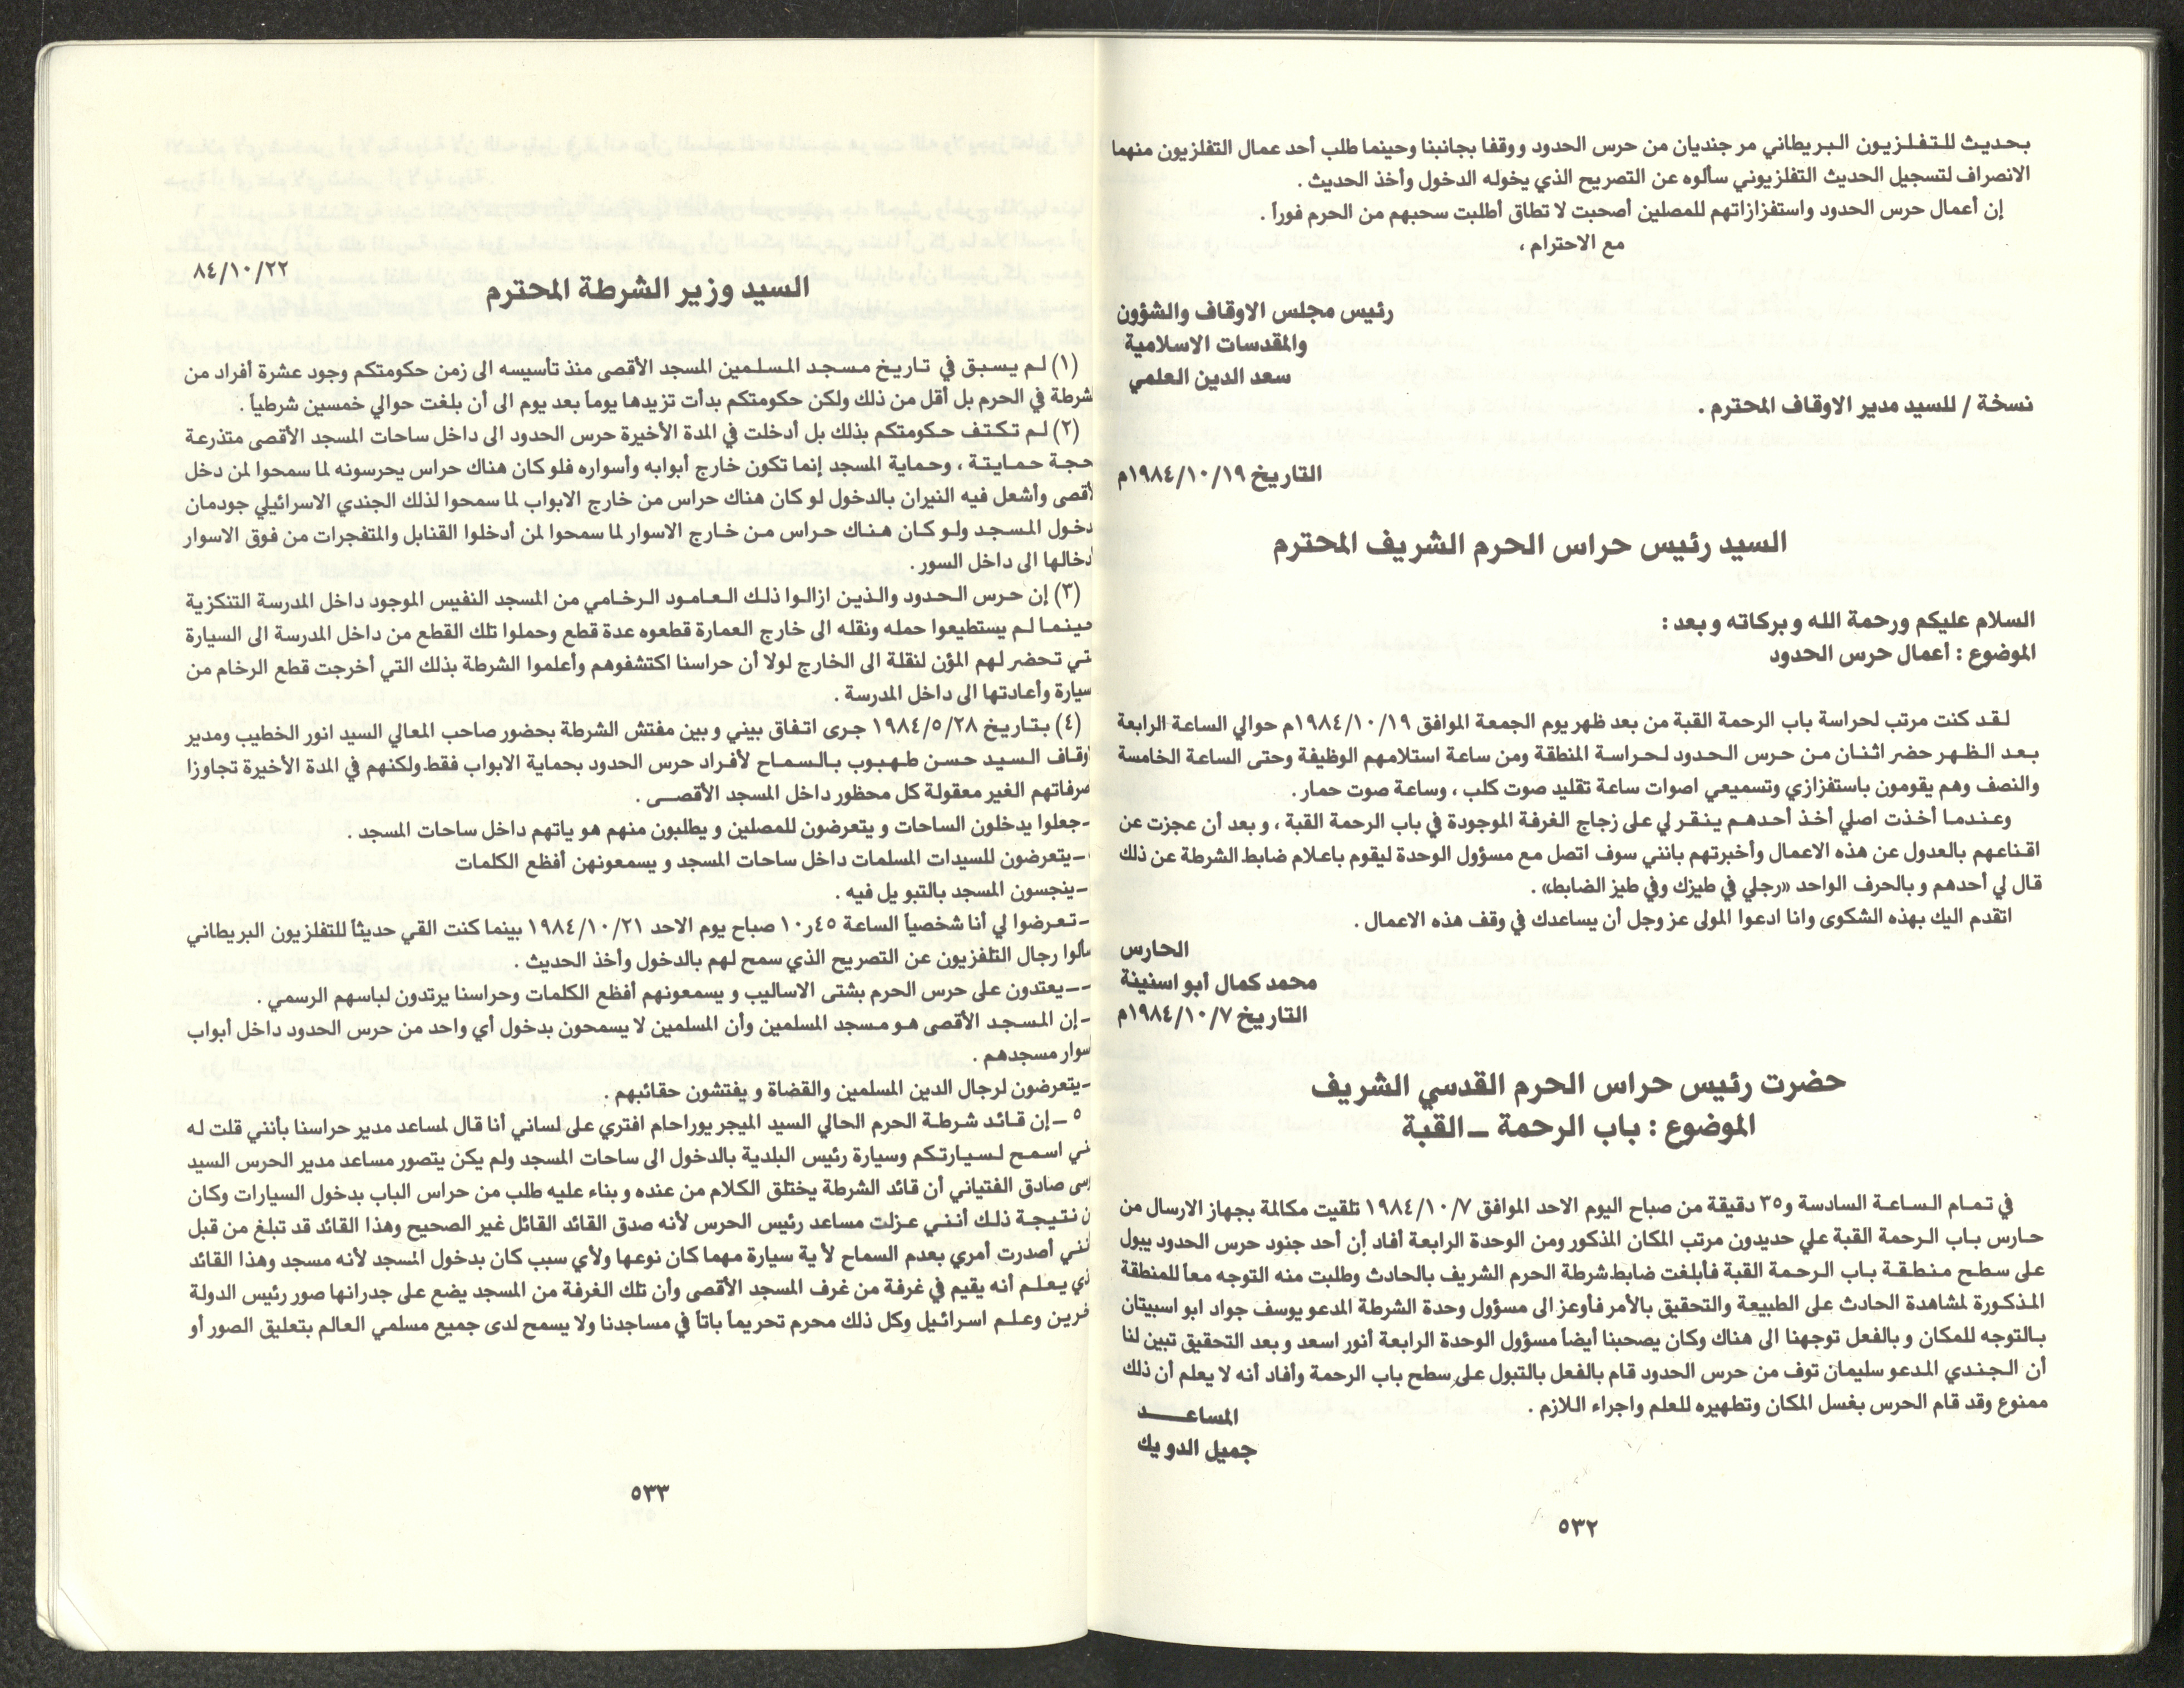 بحديث للتفلزيون البريطاني مر جنديان من حرس الحدود ووقفا بجانبنا وحينما طلب أحد عمال التفلزيون منهما
الانصراف لتسجيل الحديث التفلزيوني سألوه عن التصريح الذي يخوله الدخول وأخذ الحديث .
إن أعمال حرس الحدود واستفزازاتهم للمصلين أصحبت لا تطاق أطلبت سحبهم من الحرم فوراً .
مع الاحترام ،
رئيس مجلس الاوقاف والشؤون
والمقدسات الاسلامية
سعد الدين العلمي
نسخة / للسيد مدير الاوقاف المحترم .
التاريخ ١٩٨٤/١٠/١٩م
السيد رئيس حراس الحرم الشريف المحترم
السلام عليكم ورحمة الله وبركاته وبعد :
الموضوع : أعمال حرس الحدود
لقد كنت مرتب لحراسة باب الرحمة القبة من بعد ظهر يوم الجمعة الموافق ١٩٨٤/١٠/١٩م حوالي الساعة الرابعة
بعد الظهر حضر اثنان من حرس الحدود لحراسة المنطقة ومن ساعة استلامهم الوظيفة وحتى الساعة الخامسة
والنصف وهم يقومون باستفزازي وتسميعي اصوات ساعة تقليد صوت كلب ، وساعة صوت حمار .
وعندما أخذت اصلي أخذ أحدهم ينقر لي على زجاج الغرفة الموجودة في باب الرحمة القبة ، وبعد أن عجزت عن
اقناعهم بالعدول عن هذه الاعمال وأخبرتهم بانني سوف اتصل مع مسؤول الوحدة ليقوم باعلام ضابط الشرطة عن ذلك
قال لي أحدهم وبالحرف الواحد «رجلي في طيزك وفي طيز الضابط» .
اتقدم اليك بهذه الشكوى وانا ادعوا المولى عز وجل أن يساعدك في وقف هذه الاعمال .
الحارس
محمد كمال أبو اسنينة
التاريخ ١٩٨٤/١٠/٧م
حضرت رئيس حراس الحرم القدسي الشريف
الموضوع : باب الرحمة ــ القبة
في تمام الساعة السادسة و٣٥ دقيقة من صباح اليوم الاحد الموافق ١٩٨٤/١٠/٧ تلقيت مكالمة بجهاز الارسال من
حارس باب الرحمة القبة علي حديدون مرتب المكان المذكور ومن الوحدة الرابعة أفاد أن أحد جنود حرس الحدود يبول
على سطح منطقة باب الرحمة القبة فأبلغت ضابط شرطة الحرم الشريف بالحادث وطلبت منه التوجه معاً للمنطقة
المذكورة لمشاهدة الحادث على الطبيعة والتحقيق بالأمر فأوعز الى مسؤول وحدة الشرطة المدعو يوسف جواد ابو اسبيتان
بالتوجه للمكان وبالفعل توجهنا الى هناك وكان يصحبنا أيضاً مسؤول الوحدة الرابعة أنور اسعد وبعد التحقيق تبين لنا
أن الجندي المدعو سليمان توف من حرس الحدود قام بالفعل بالتبول على سطح باب الرحمة وأفاد أنه لا يعلم أن ذلك
ممنوع وقد قام الحرس بغسل المكان وتطهيره للعلم واجراء اللازم .
المساعــــد
جميل الدويك
٥٣٢
٨٤/١٠/٢٢
السيد وزير الشرطة المحترم
(١) لم يسبق في تاريخ مسجد المسلمين المسجد الأقصى منذ تأسيسه الى زمن حكومتكم وجود عشرة أفراد من
شرطة في الحرم بل أقل من ذلك ولكن حكومتكم بدأت تزيدها يوماً بعد يوم الى أن بلغت حوالي خمسين شرطياً .
(٢) لم تكتف حكومتكم بذلك بل أدخلت في المدة الأخيرة حرس الحدود الى داخل ساحات المسجد الأقصى متذرعة
حجة حمايتة ، وحماية المسجد إنما تكون خارج أبوابه وأسواره فلو كان هناك حراس يحرسونه لما سمحوا لمن دخل
لأقصى وأشعل فيه النيران بالدخول لو كان هناك حراس من خارج الابواب لما سمحوا لذلك الجندي الاسرائيلي جودمان
دخول المسجد ولو كان هناك حراس من خارج الاسوار لما سمحوا لمن أدخلوا القنابل والمتفجرات من فوق الاسوار
دخالها الى داخل السور .
(٣) إن حرس الحدود والذين ازالوا ذلك العامود الرخامي من المسجد النفيس الموجود داخل المدرسة التنكزية
حينما لم يستطيعوا حمله ونقله الى خارج العمارة قطعوه عدة قطع وحملوا تلك القطع من داخل المدرسة الى السيارة
تي تحضر لهم المؤن لنقلة الى الخارج لولا أن حراسنا اكتشفوهم وأعلموا الشرطة بذلك التي أخرجت قطع الرخام من
سيارة وأعادتها الى داخل المدرسة .
(٤) بتاريخ ١٩٨٤/٥/٢٨ جرى اتفاق بيني وبين مفتش الشرطة بحضور صاحب المعالي السيد انور الخطيب ومدير
أوقاف السيد حسن طهبوب بالسماح لأفراد حرس الحدود بحماية الابواب فقط ولكنهم في المدة الأخيرة تجاوزا
صرفاتهم الغير معقولة كل محظور داخل المسجد الأقصــى .
ــ جعلوا يدخلون الساحات ويتعرضون للمصلين ويطلبون منهم هوياتهم داخل ساحات المسجد .
ــ يتعرضون للسيدات المسلمات داخل ساحات المسجد ويسمعونهن أفظع الكلمات
ــ ينجسون المسجد بالتبويل فيه .
ــ تعرضوا لي أنا شخصياً الساعة ٤٥ر١٠ صباح يوم الاحد ١٩٨٤/١٠/٢١ بينما كنت القي حديثاً للتفلزيون البريطاني
سألوا رجال التلفزيون عن التصريح الذي سمح لهم بالدخول وأخذ الحديث .
ــ يعتدون على حرس الحرم بشتى الاساليب ويسمعونهم أفظع الكلمات وحراسنا يرتدون لباسهم الرسمي .
ــ إن المسجد الأقصى هو مسجد المسلمين وأن المسلمين لا يسمحون بدخول أي واحد من حرس الحدود داخل أبواب
سوار مسجدهم .
ــ يتعرضون لرجال الدين المسلمين والقضاة ويفتشون حقائبهم .
٥ ــ إن قائد شرطة الحرم الحالي السيد الميجر يوراحام افتري على لساني أنا قال لمساعد مدير حراسنا بأنني قلت له
ني اسمح لسيارتكم وسيارة رئيس البلدية بالدخول الى ساحات المسجد ولم يكن يتصور مساعد مدير الحرس السيد
سى صادق الفتياني أن قائد الشرطة يختلق الكلام من عنده وبناء عليه طلب من حراس الباب بدخول السيارات وكان
ن نتيجة ذلك أنني عزلت مساعد رئيس الحرس لأنه صدق القائد القائل غير الصحيح وهذا القائد قد تبلغ من قبل
نني أصدرت أمري بعدم السماح لأية سيارة مهما كان نوعها ولأي سبب كان بدخول المسجد لأنه مسجد وهذا القائد
ذي يعلم أنه يقيم في غرفة من غرف المسجد الأقصى وأن تلك الغرفة من المسجد يضع على جدرانها صور رئيس الدولة
خرين وعلم اسرائيل وكل ذلك محرم تحريماً باتاً في مساجدنا ولا يسمح لدى جميع مسلمي العالم بتعليق الصور أو
٥٣٣